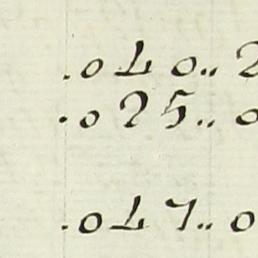 .040..2
.025..0
.047..0